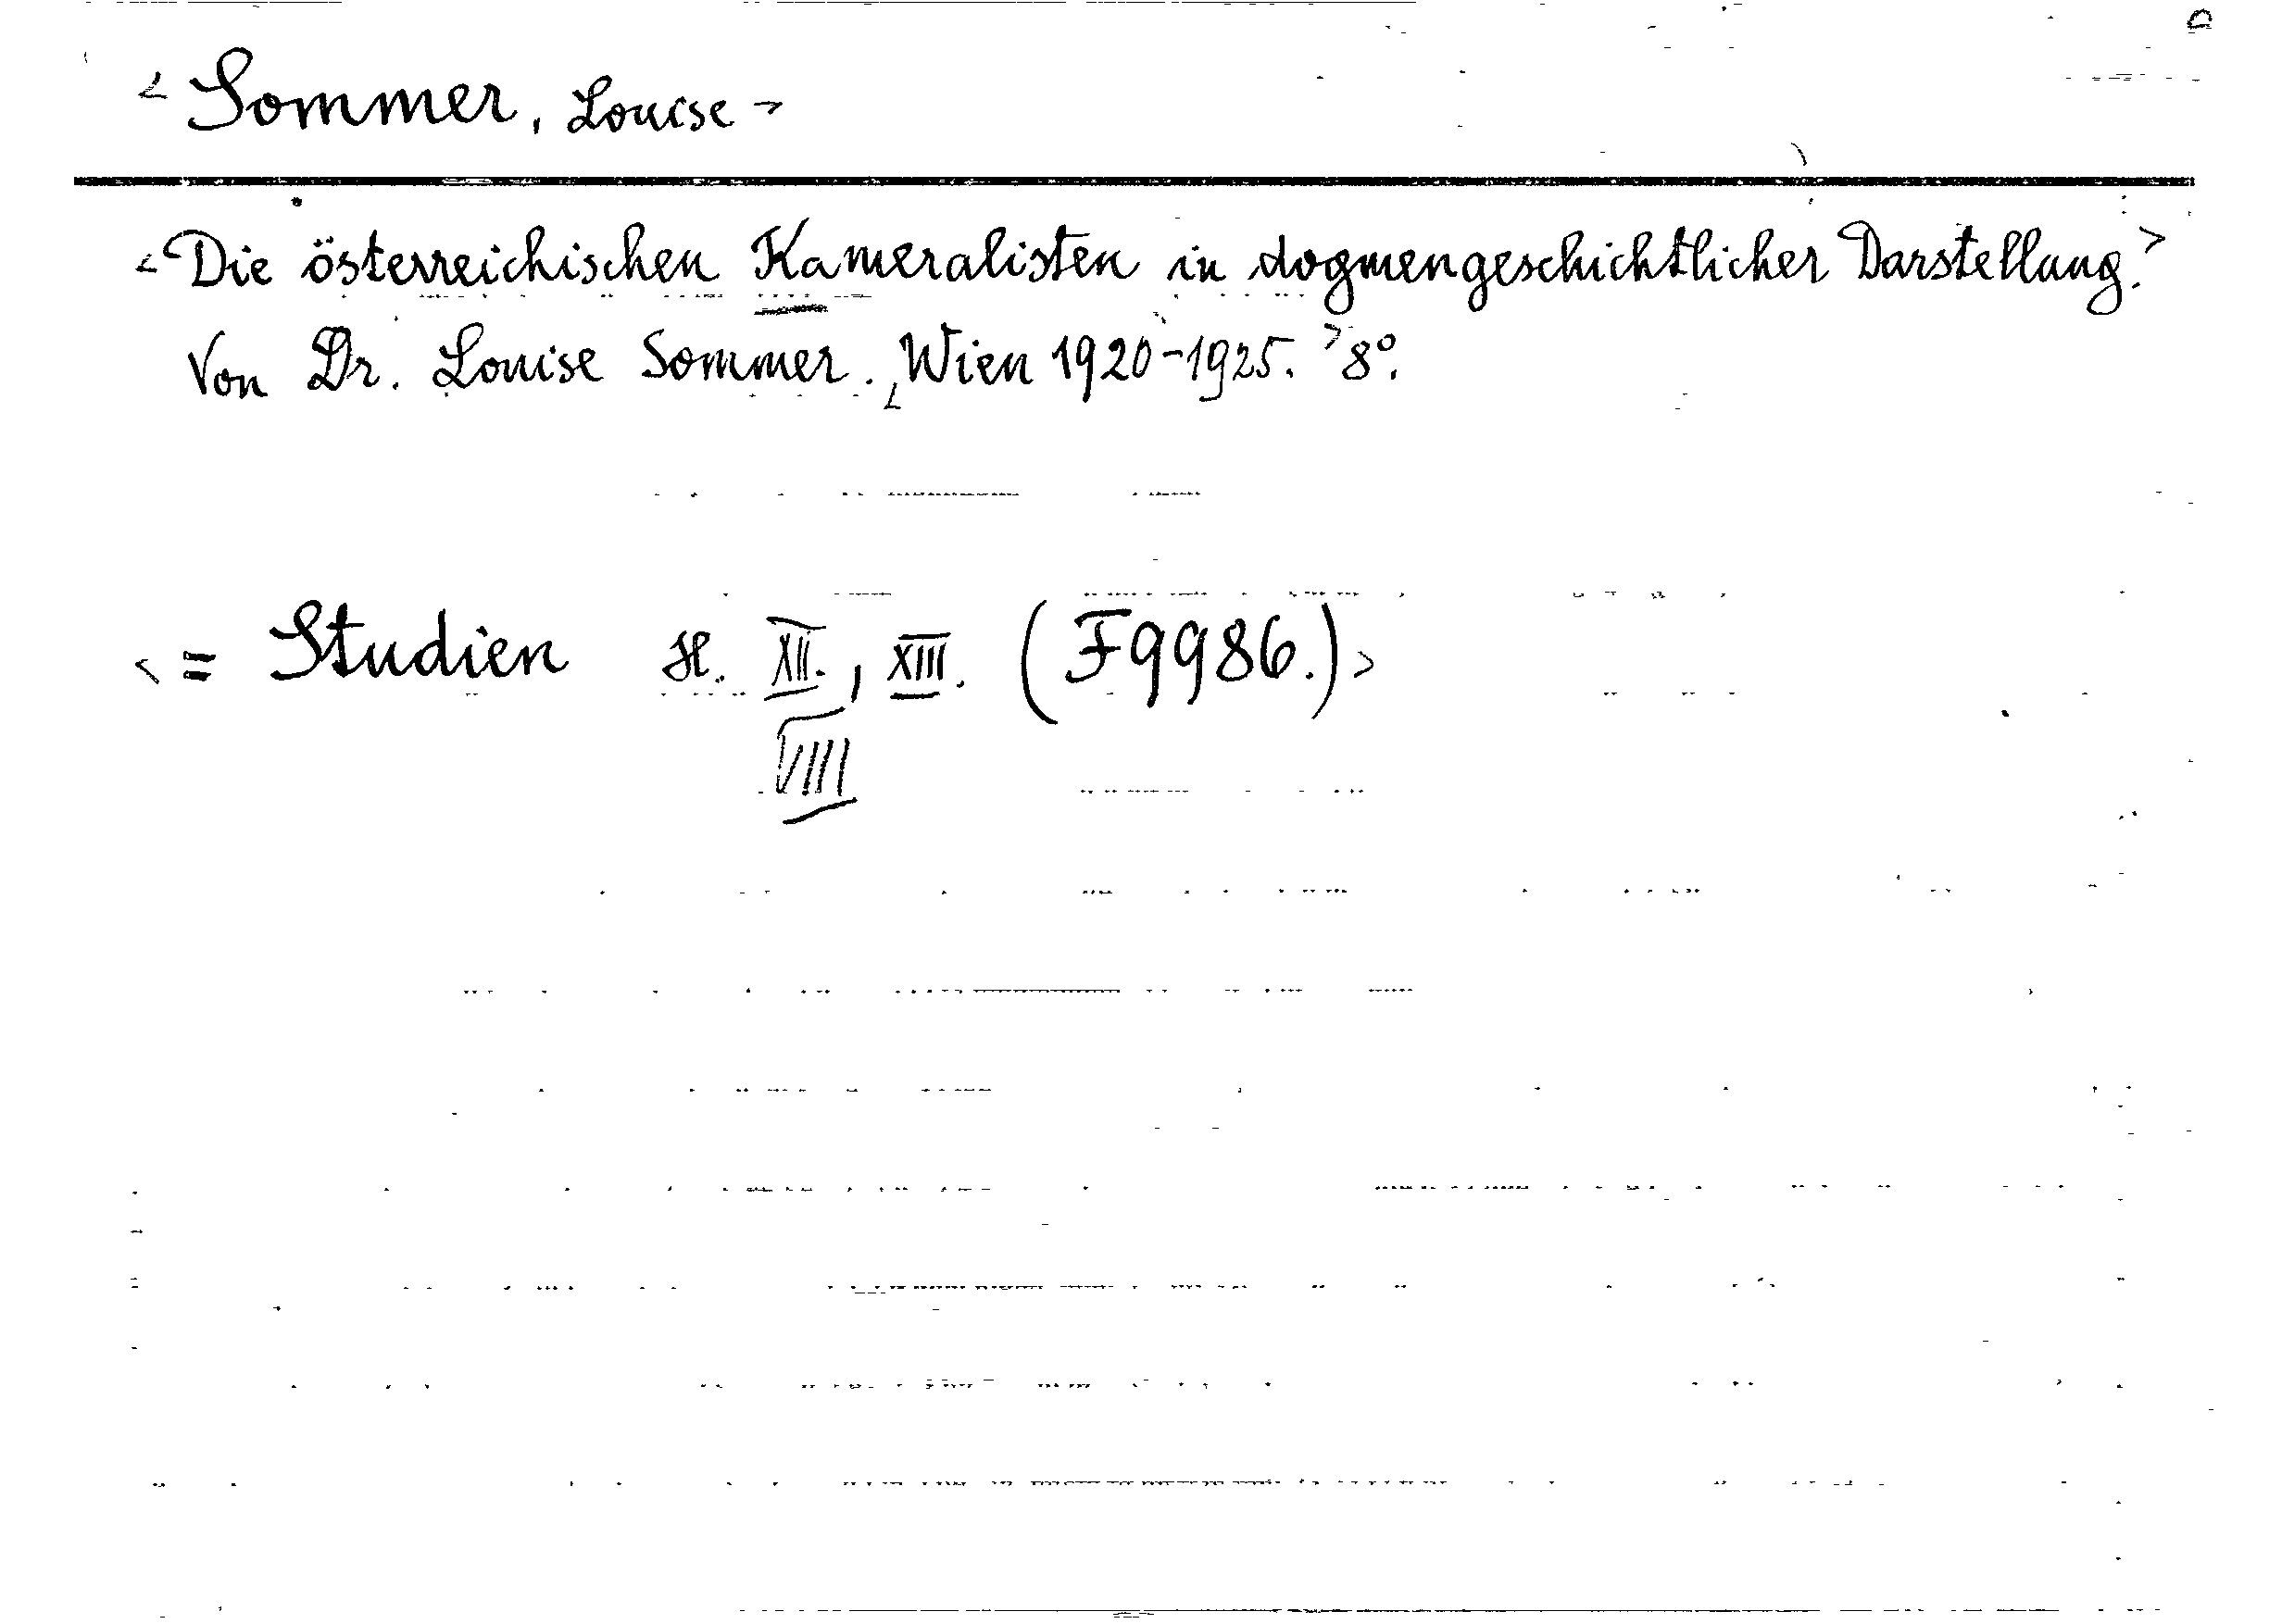 < Sommer, Louise >
< Die österreichischen Kameralisten in dogmengeschichtlicher Darstellung. >
Von Dr. Louise Sommer. < Wien 1920-1925. > 8°.
< = Studien H. XII., XIII. (F9986.) >
VIII